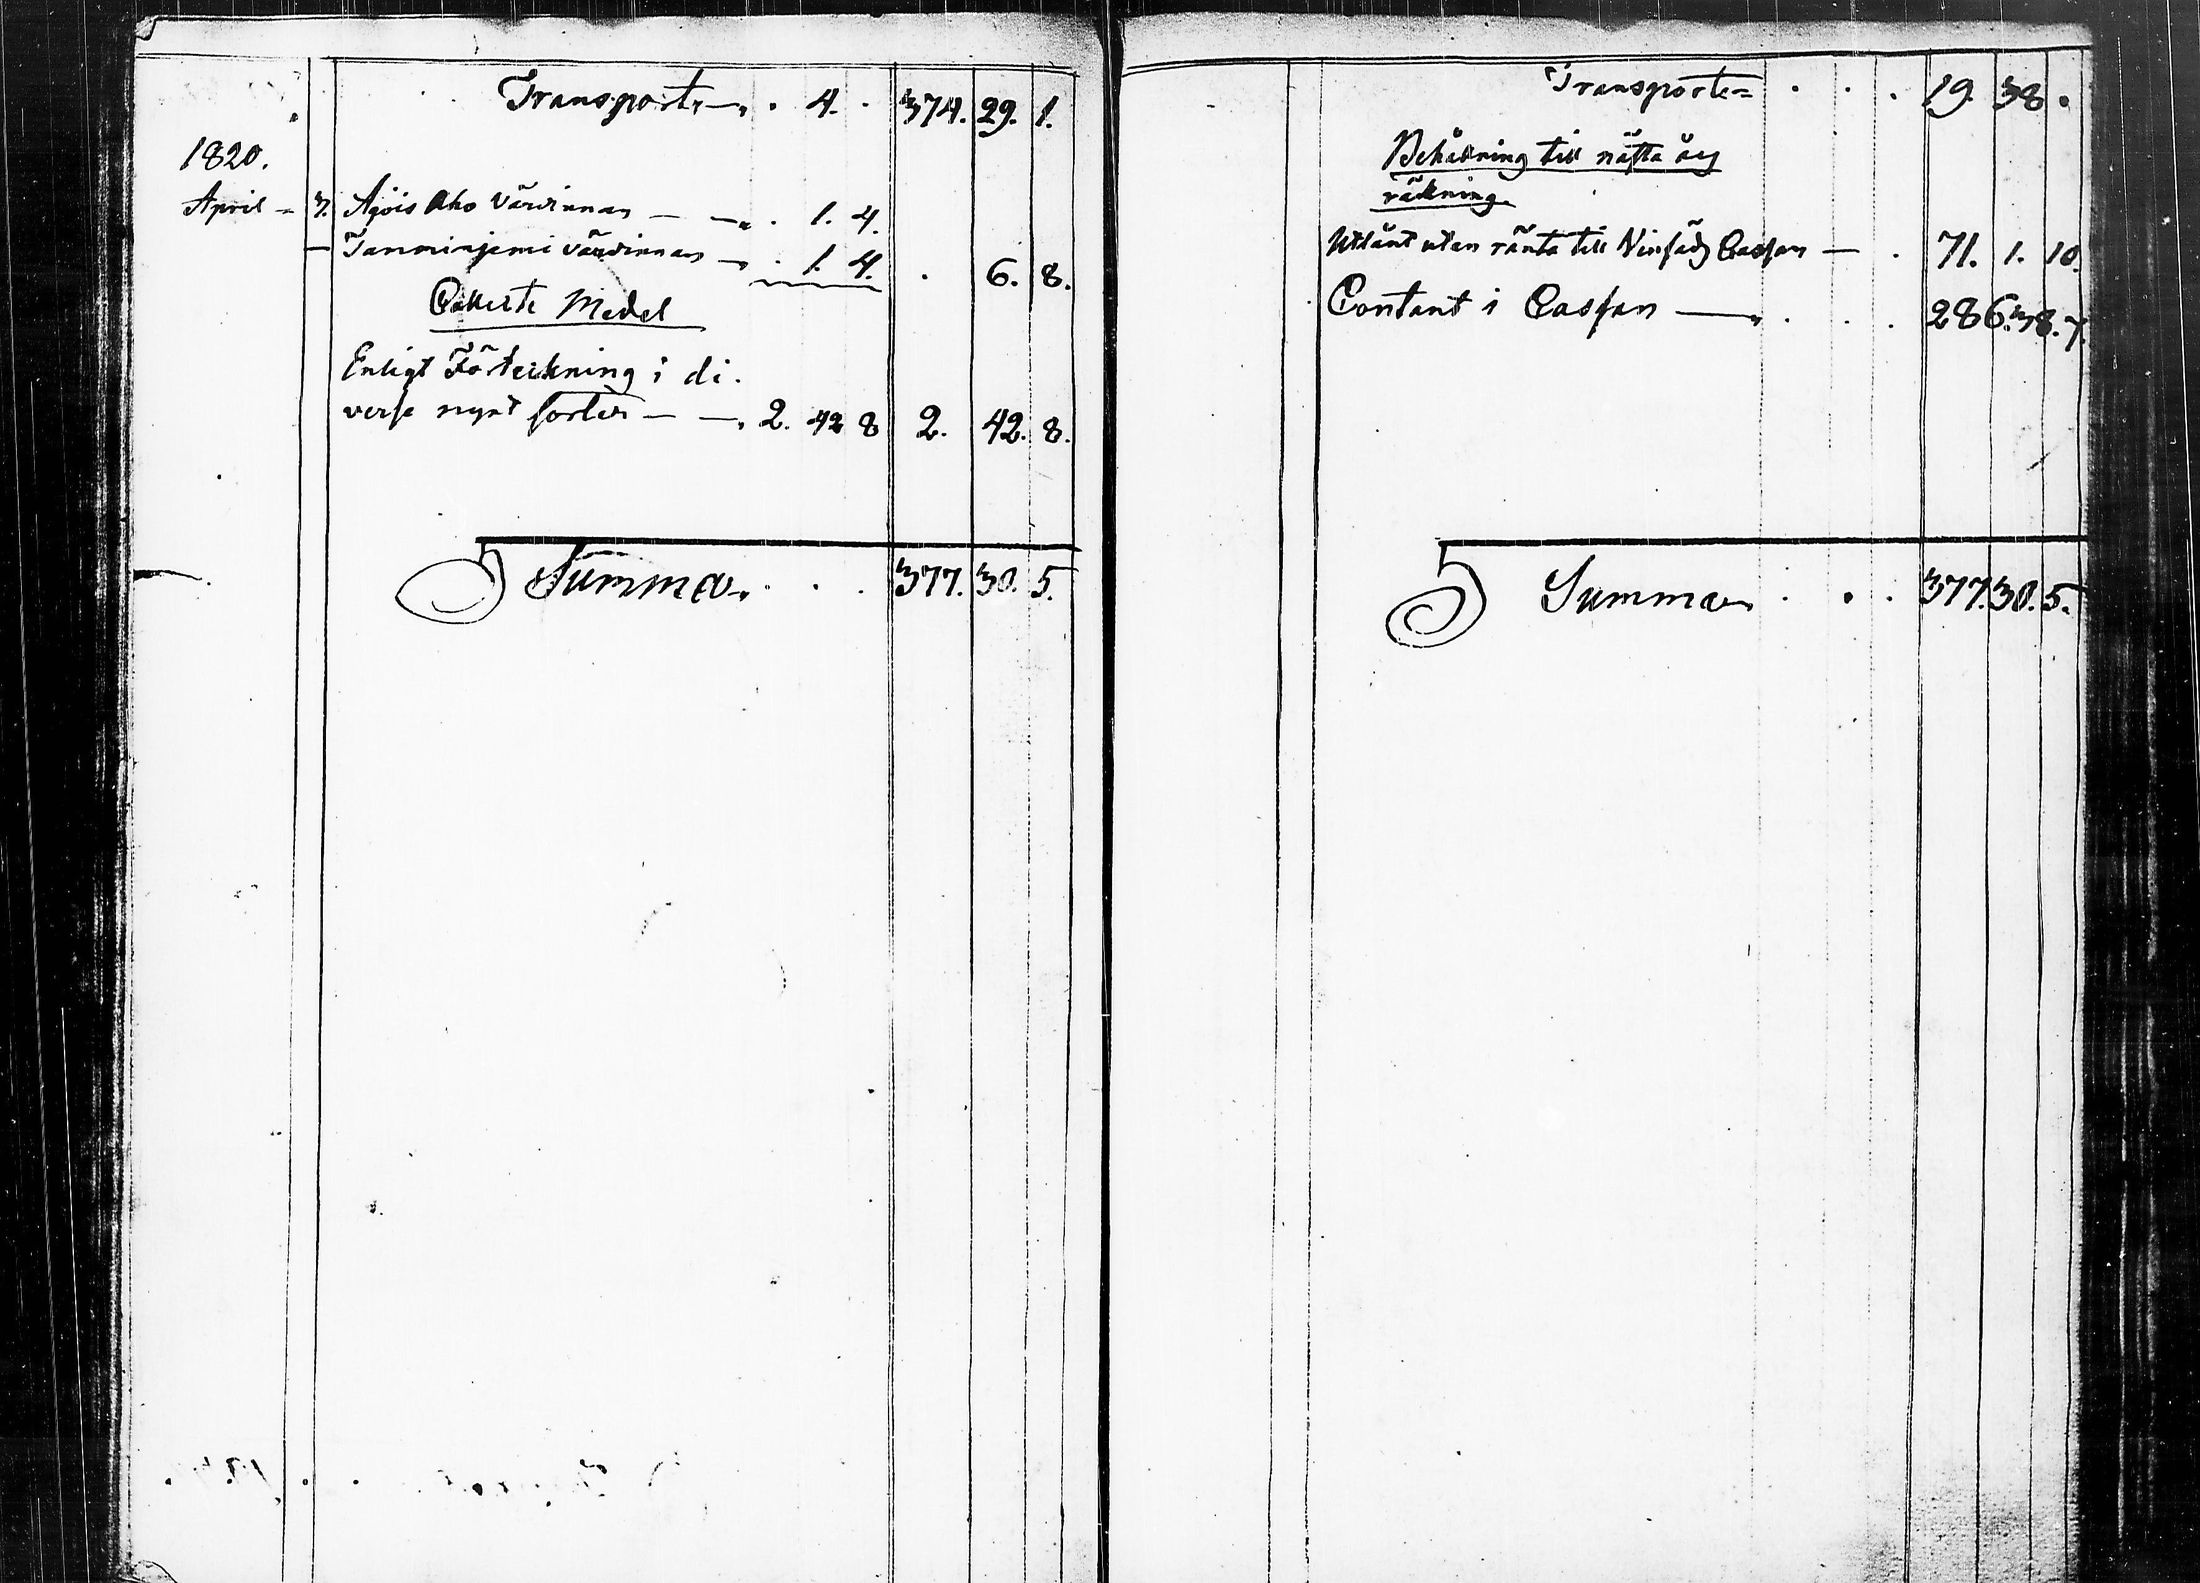 Transport . 4. . 374. 29. 1.
1820.
April 7. Ajöis Aho Värdinnan . 1. 4.
— Tamminjemi Värdinnan . 1. 4. . 6. 8.
Collecte Medel
Enligt Förteckning i di-
verse mynt sorter — 2. 42 8 2. 42. 8.
Summa . . . 377. 30. 5.
Transport . . . 19. 38 .
Behållning till nästa års
räkning
Utlånt utan ränta till Cassan — . 71. 1. 10.
Contant i Cassan — . . . 286. 38. 7.
Summa . . . 377. 30. 5.